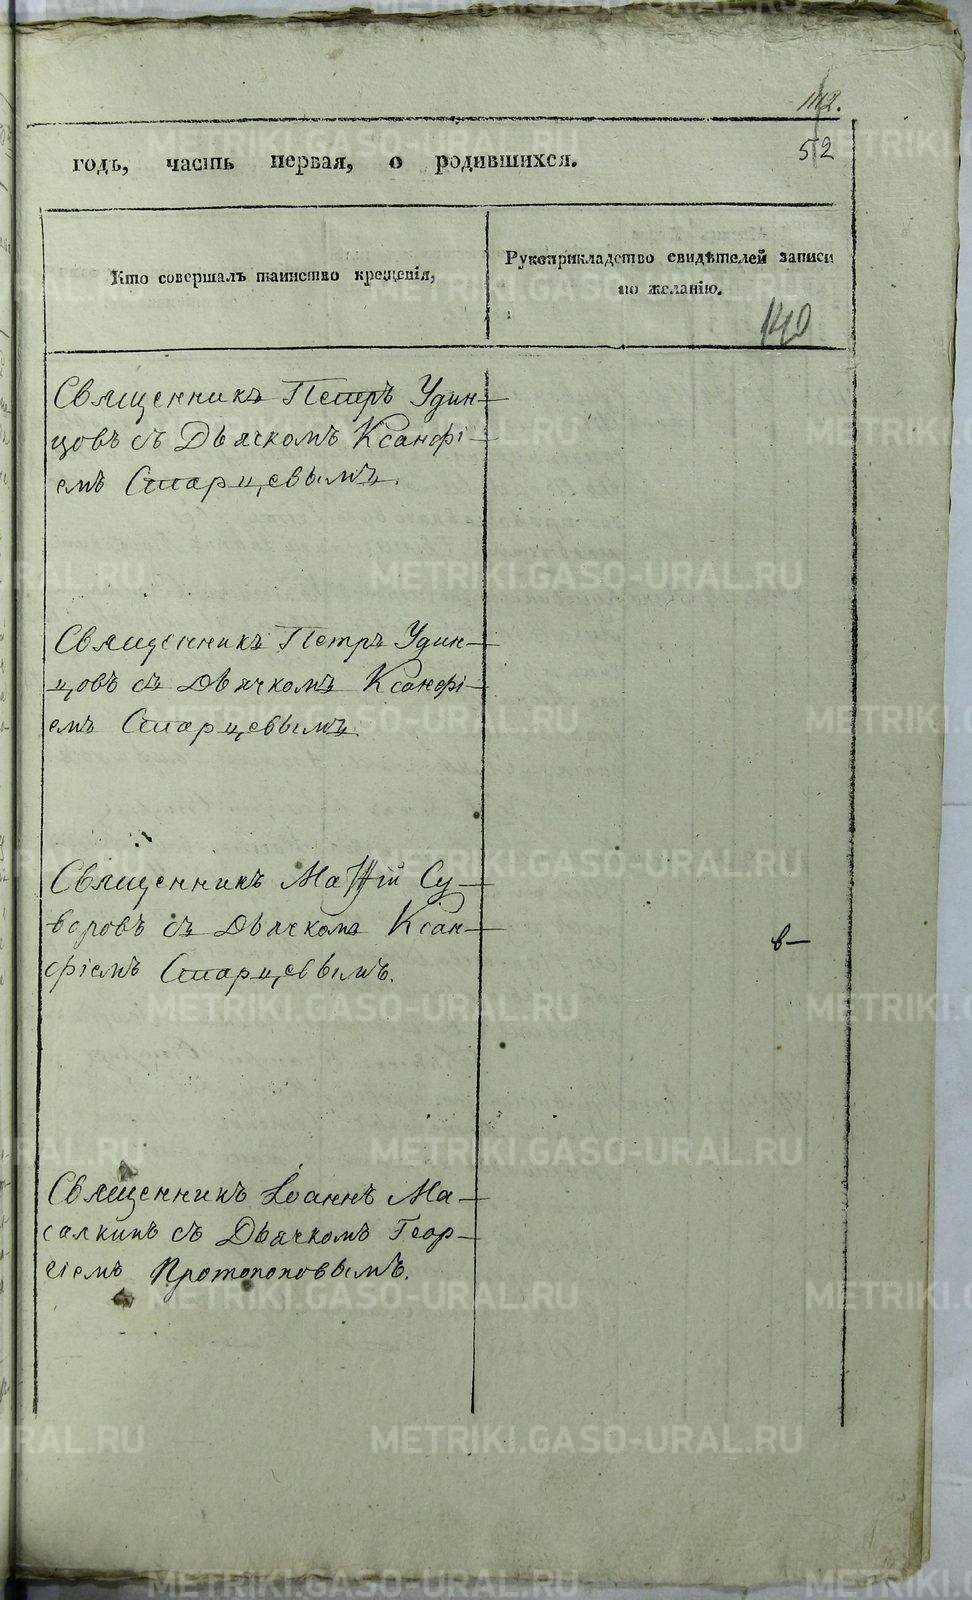 112.
52
годъ, часть первая, о родившихся.
Кто совершалъ таинство крещенія,
Рукоприкладство свидѣтелей записи
по желанію.
140
Священникъ Петръ Удин-
цовъ съ Дьячкомъ Ксанфі-
емъ Старцевымъ.
Священникъ Петръ Удин-
цовъ съ Дьячкомъ Ксанфі-
емъ Старцевымъ.
Священникъ Матѳій Су-
воровъ съ Дьячкомъ Ксан-
фіемъ Старцевымъ.
в-
Священникъ Іоаннъ Ма-
салкинъ съ Дьячкомъ Геор-
гіемъ Протопоповымъ.
METRIKI.GASO-URAL.RU